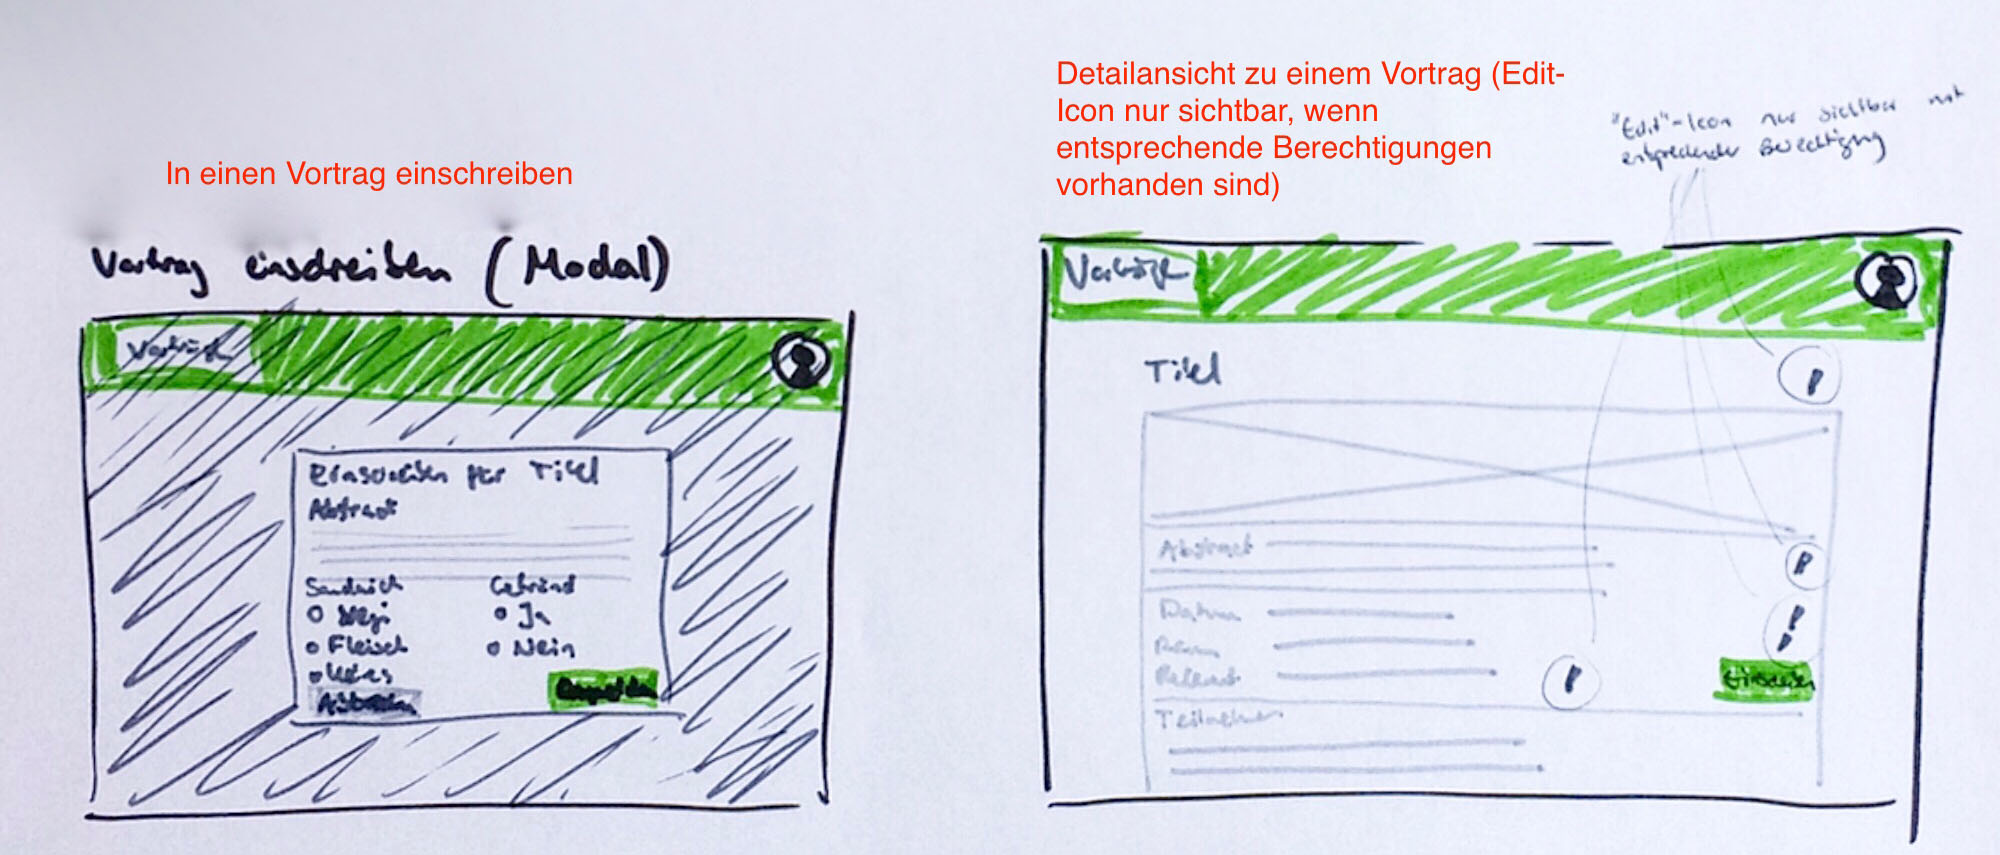 In einen Vortrag einschreiben
Vortrag einschreiben (Modal)
Vorträge
Einschreiben für Titel
Abstract
Sandwich
Getränk
Vegi
Ja
Fleisch
Nein
Keines
Abbrechen
Detailansicht zu einem Vortrag (Edit-
Icon nur sichtbar, wenn
entsprechende Berechtigungen
vorhanden sind)
"Edit"-Icon nur sichtbar mit
entsprechender Berechtigung
Vorträge
Titel
Abstract
Datum
Raum
Referent
Einschreiben
Teilnehmer